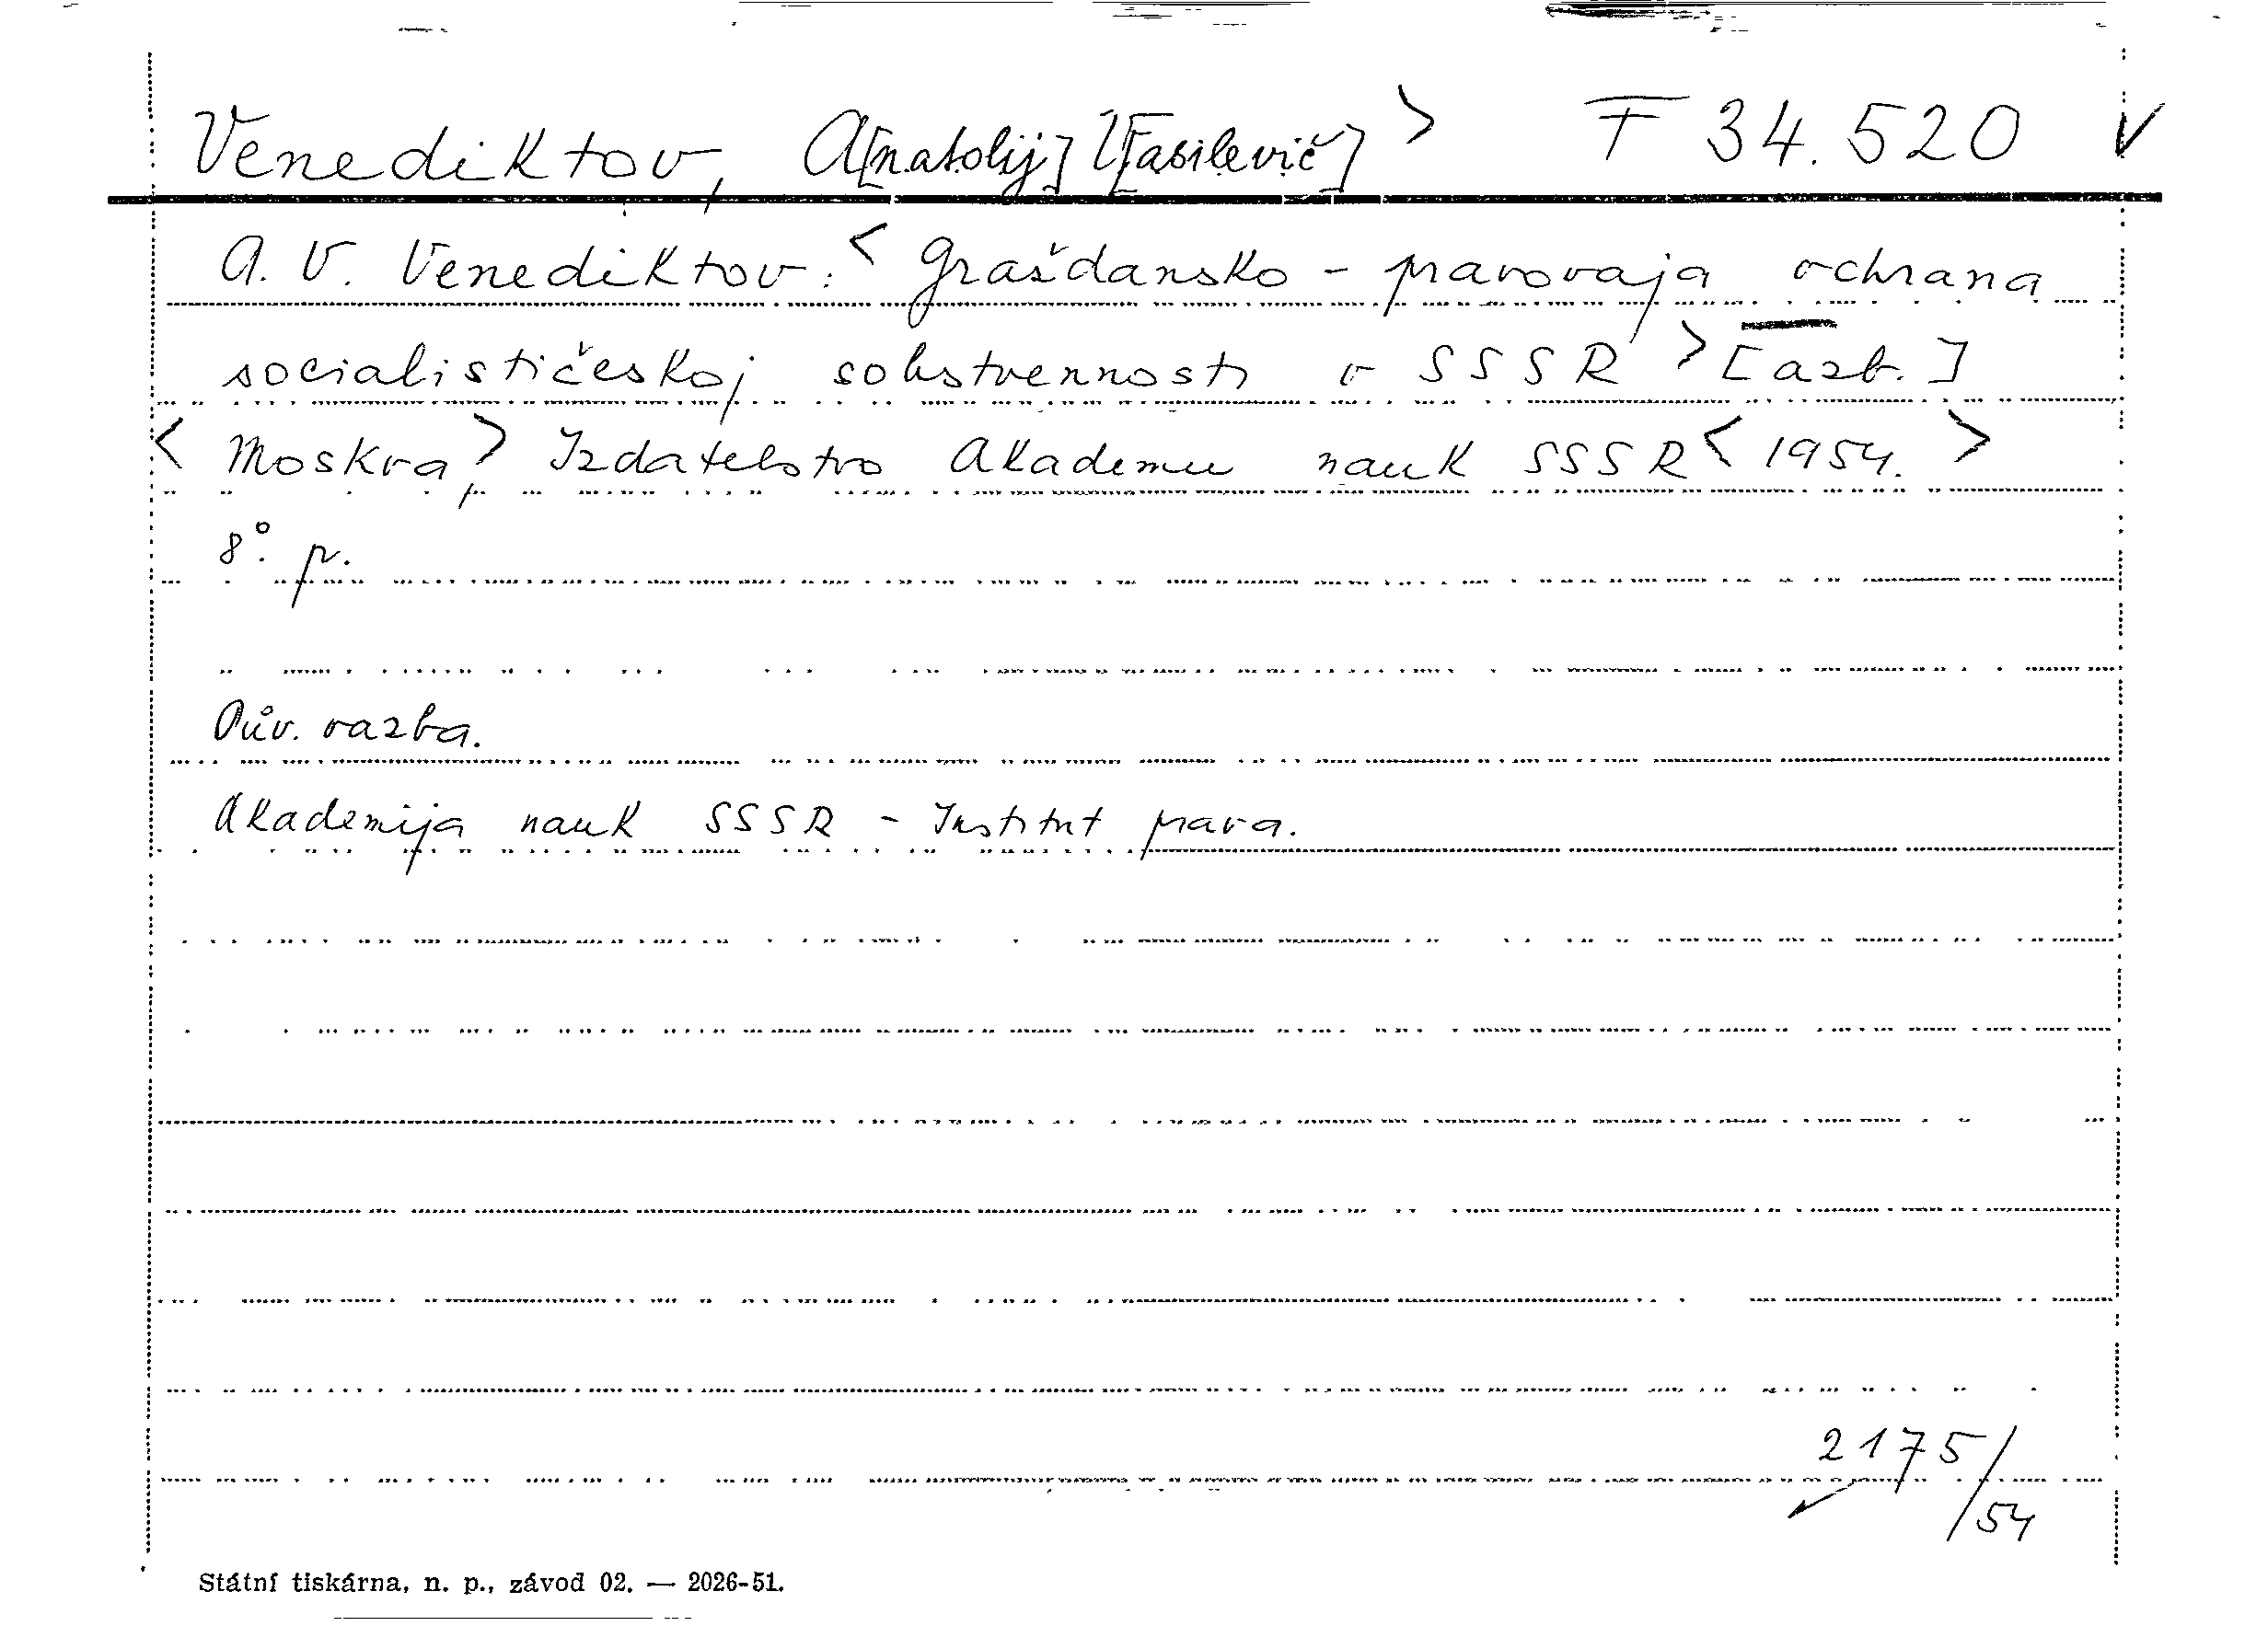 Venediktov, A[natolij] V[asilevič] > F 34.520 V
A. V. Venediktov: < Graždansko-pravovaja ochrana
socialističeskoj sobstvennosti v SSSR > [azb.]
< Moskva, > Izdatelstvo Akademii nauk SSSR < 1954. >
8°. p.
Pův. vazba.
Akademija nauk SSSR - Institut prava.
2175/54
Státní tiskárna, n. p., závod 02. — 2026-51.